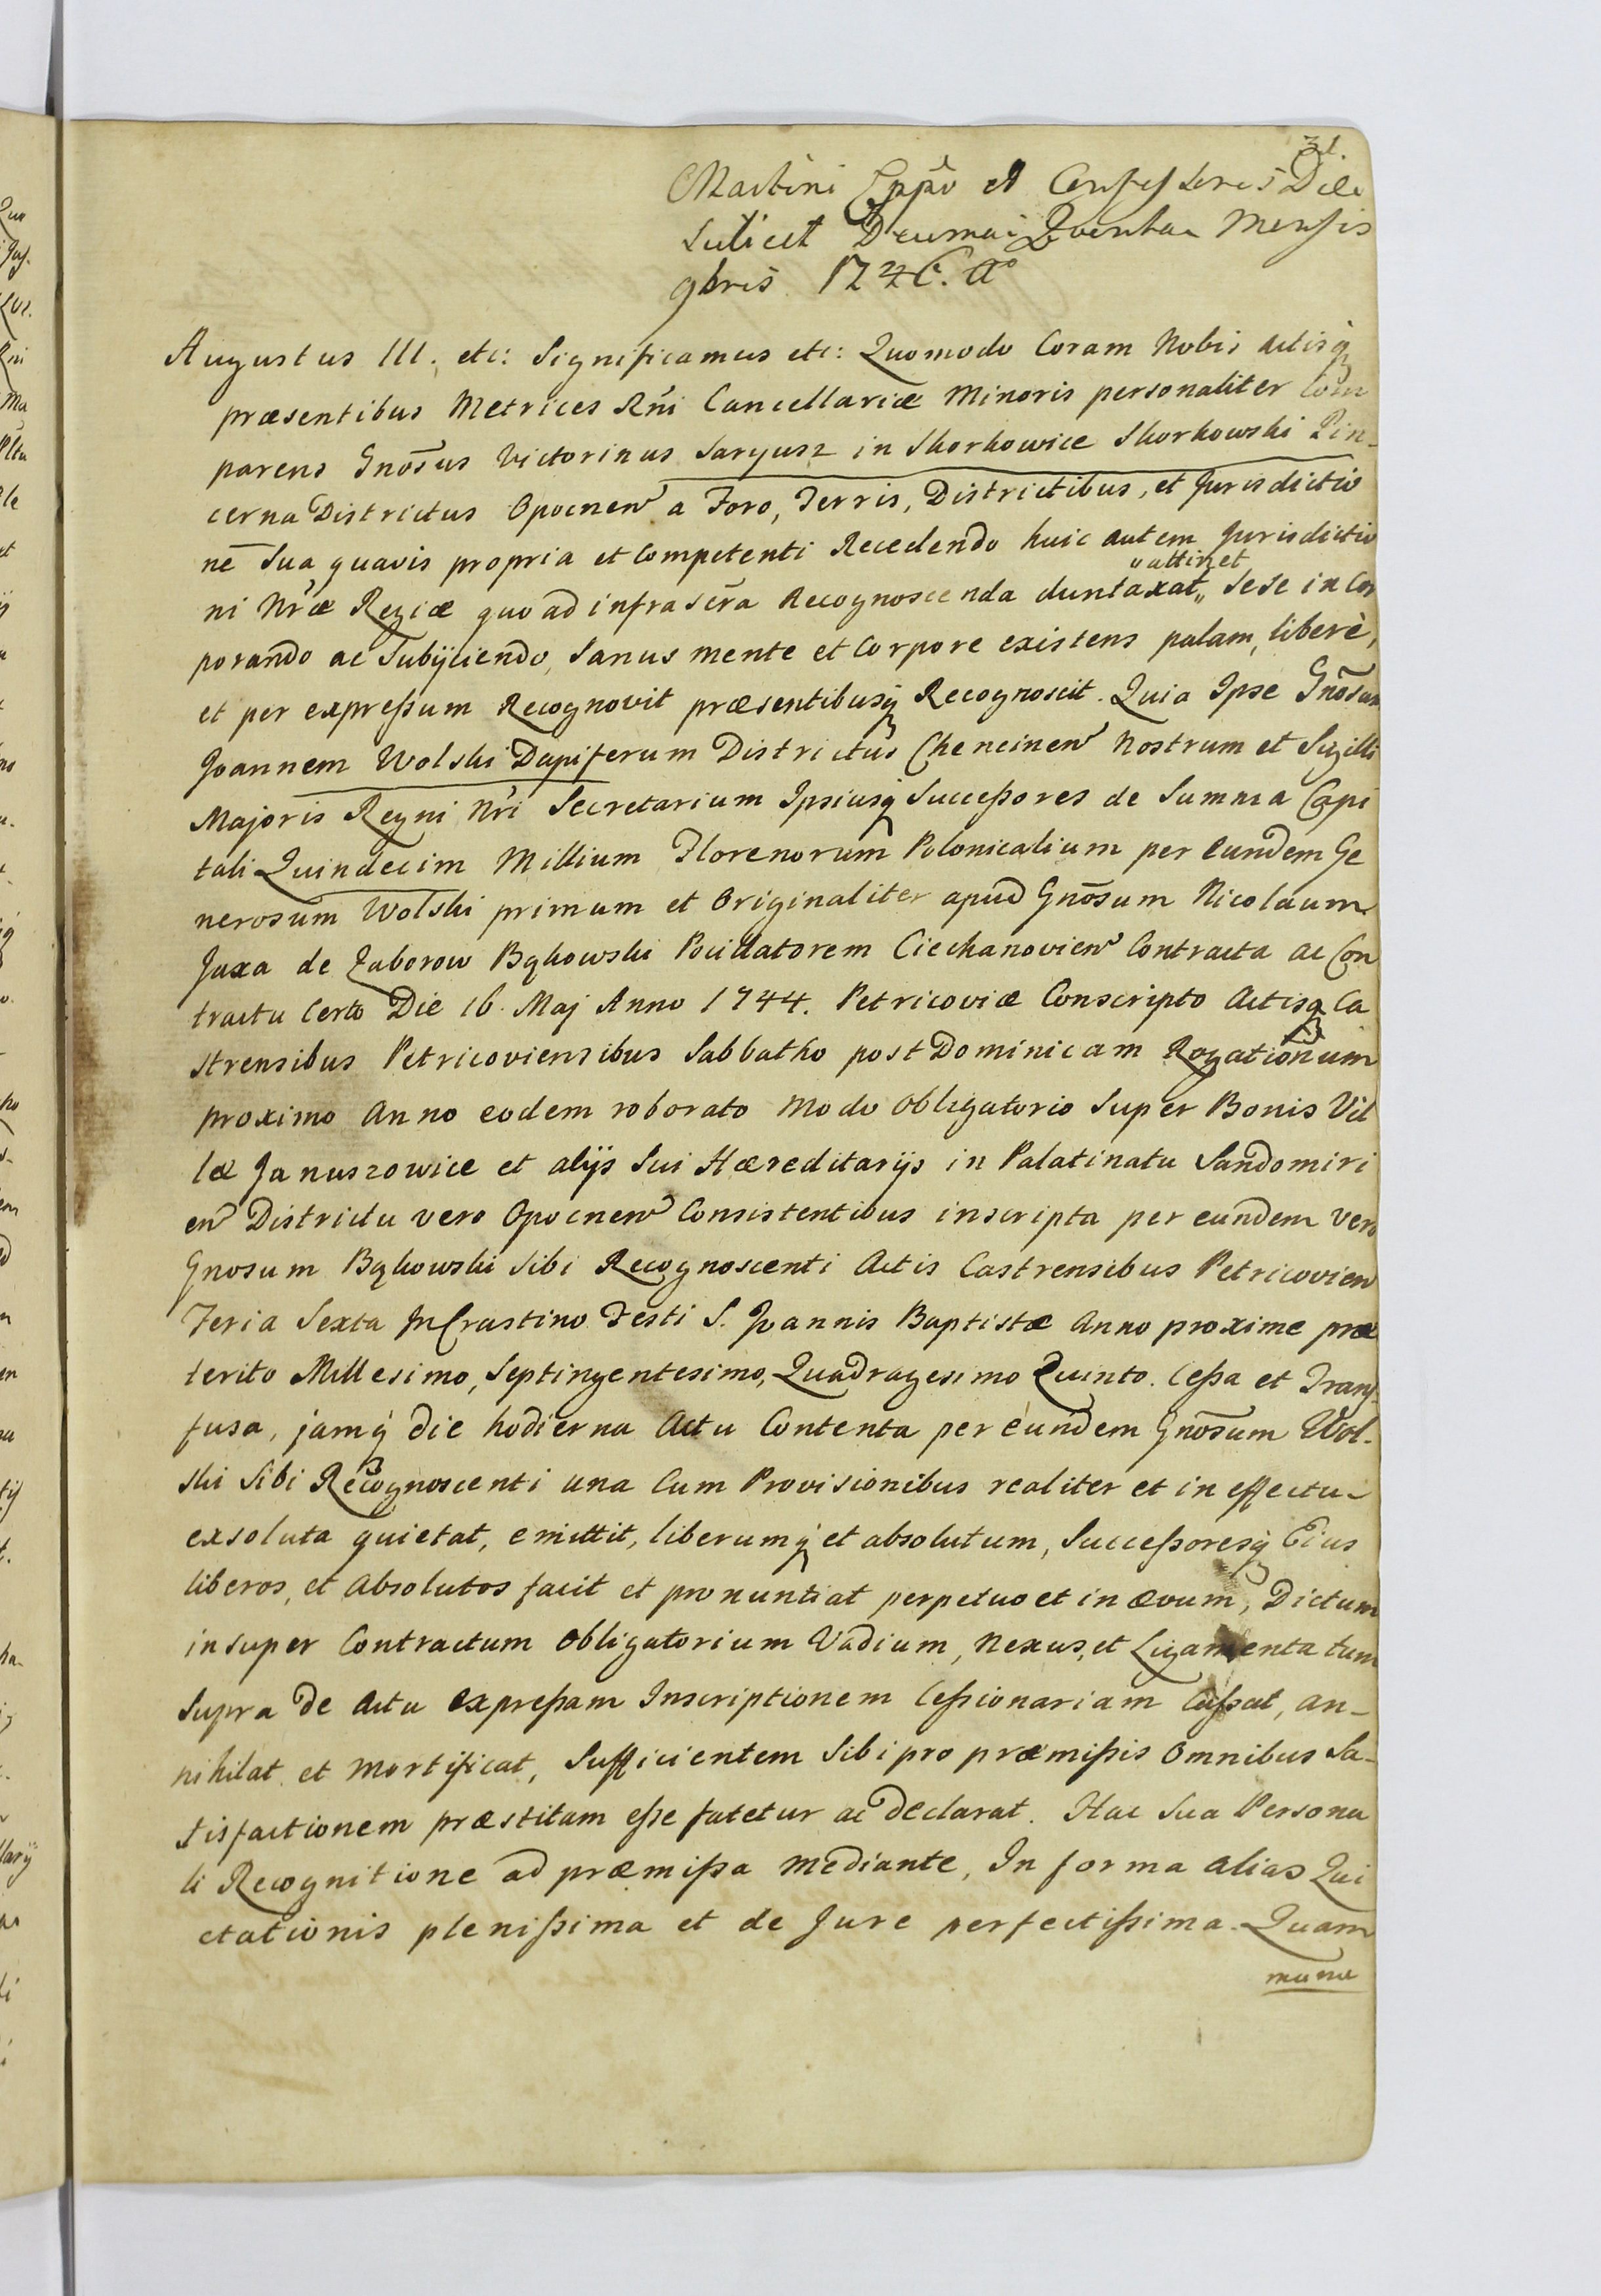 31.
Martini Eppi et Confessoris Die
scilicet Decima Quinta Mensis
9bris 1746. Aº
Augustus III. etc: Significamus etc: Quomodo Coram Nobis Actisq
præsentibus Metrices Rñi Cancellariæ Minoris personaliter Com
parens Gnõsus Victorinus Saryusz in Skorkowice Skorkowski Pin-
cerna Districtus Opocnen a Foro, Terris, Districtibus, et Jurisdictio
nē Sua quavis propria et Competenti Recedendo huic autem Jurisdictio
ni Nræ Regiæ quo ad infrascra Recognoscenda duntaxat „ attinet Sese in Cor
porando ac Subijciendo, Sanus mente et Corpore existens palam, liberè,
et per expreßum Recognovit præsentibusq Recognoscit. Quia Ipse Gnõsum
Joannem Wolski Dapiferum Districtus Chencinen Nostrum et Sigilli
Majoris Regni Nri Secretarium Ipsiusq Succeßores de Summa Capi
tali Quindecim Millium Florenorum Polonicalium per Eundem Ge
nerosum Wolski primum et Originaliter apud Gnõsum Nicolaum
Jaxa de Zaborow Bąkowski Pocillatorem Ciechanovien Contracta ac Con
tractu Certo Die 16. Maj Anno 1744. Petricoviæ Conscripto Actisq Ca
strensibus Petricoviensibus Sabbatho post Dominicam Rogationum
proximo Anno eodem roborato Modo Obligatorio Super Bonis Vil
læ Januszowice et alijs Sui Hæreditarijs in Palatinatu Sandomiri
en Districtu vero Opocnen Consistentibus inscripta per eundem Vero
Gnosum Bąkowski Sibi Recognoscenti Actis Castrensibus Petricovien
Feria Sexta In Crastino Festi S. Joannis Baptistæ Anno proxime præ
terito Millesimo, Septingentesimo, Quadragesimo Quinto. Ceßa et Trans-
fusa, jamq die hodierna Actu Contenta per eundem Gnõsum Wol-
ski Sibi Recognoscenti una Cum Provisionibus realiter et in effectu
exsoluta quietat, emittit, liberumq et absolutum, Succeßoresq Eius
liberos, et Absolutos facit et pronuntiat perpetuo et in ævum, Dictum
insuper Contractum Obligatorium Vadium, Nexus, et Ligamenta tum
Supra de Actu Expreßam Inscriptionem Ceßionariam Caßat, an-
nihilat et Mortificat, Sufficientem Sibi pro præmißis Omnibus Sa-
tisfactionem præstitam eße fatetur ac declarat. Hac Sua Persona
li Recognitione ad præmißa Mediante, In forma alias Qui
etationis pleniß­ima et de Jure perfectißima. Quam